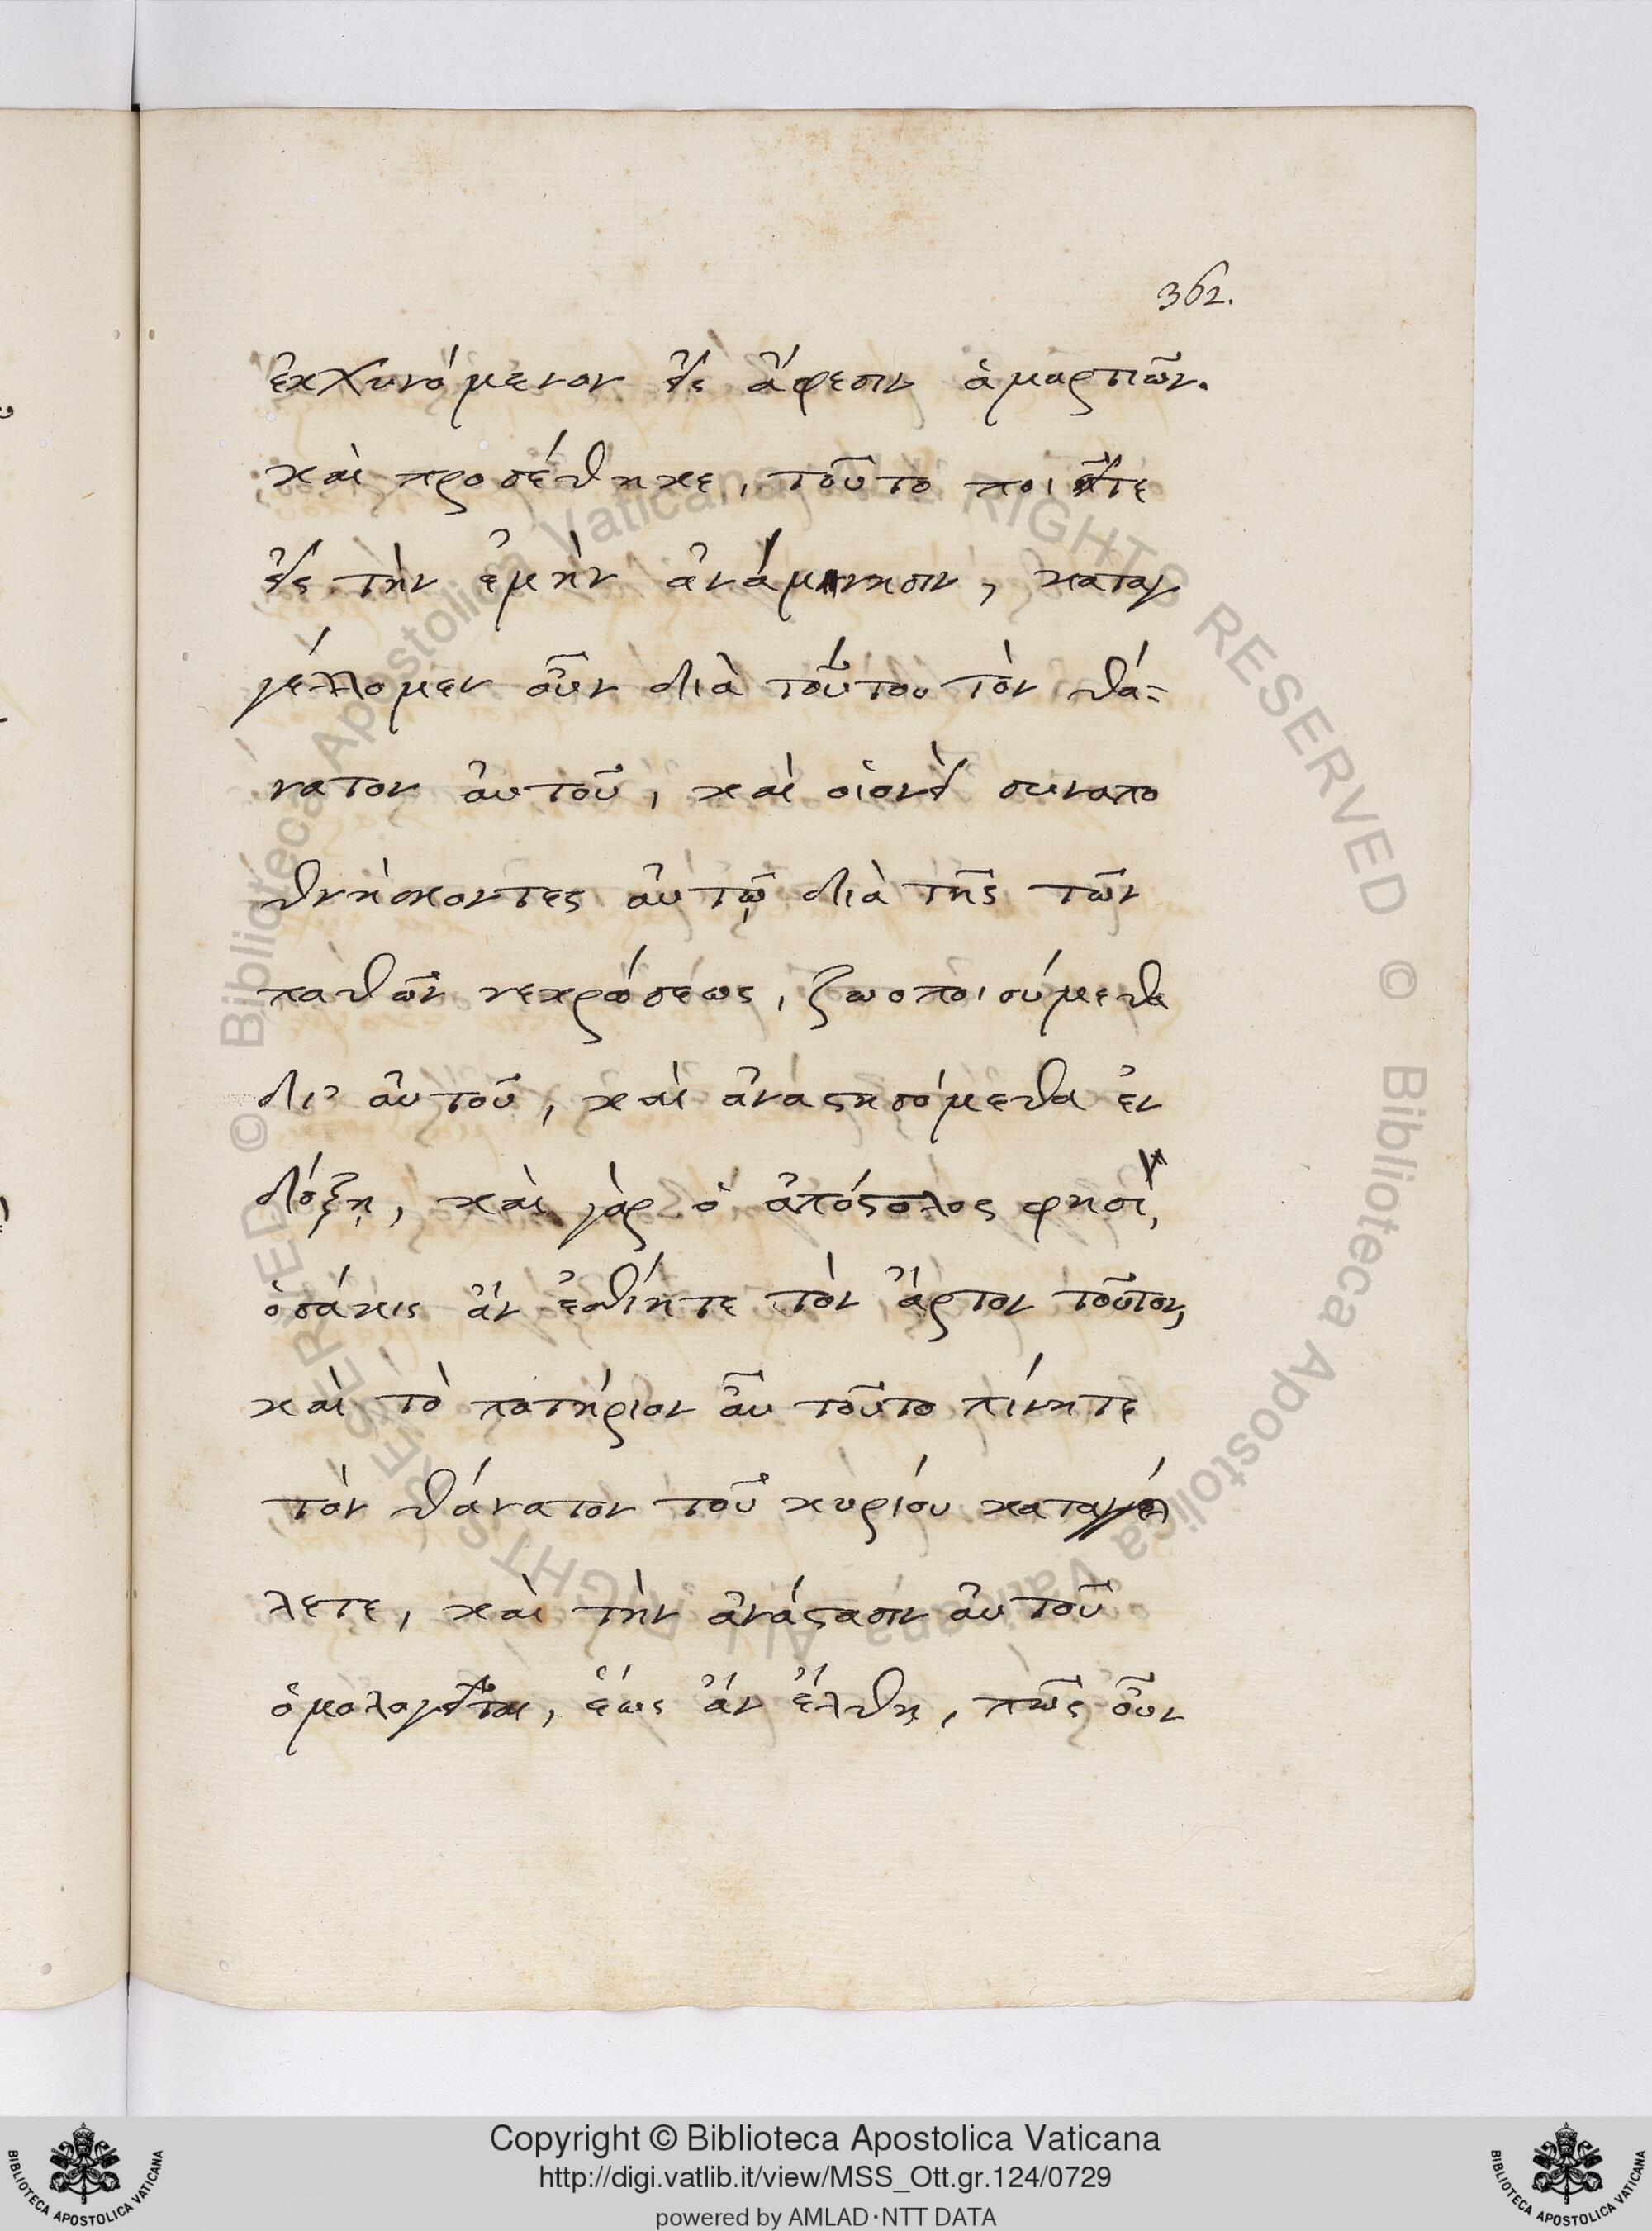 362.
ἐκχυνόμενον εἰς ἄφεσιν ἁμαρτιῶν.
καὶ προσέθηκε, τοῦτο ποιεῖτε
εἰς τὴν ἐμὴν ἀνάμνησιν, καταγ
γέλλομεν οὖν διὰ τούτου τὸν θά-
νατον αὐτοῦ, καὶ οἱονεὶ συναπο
θνήσκοντες αὐτῷ διὰ τῆς τῶν
παθῶν νεκρώσεως, ζωοποιούμεθα
δι' αὐτοῦ, καὶ ἀναστησόμεθα ἐν
δόξῃ, καὶ γὰρ ὁ ἀπόστολος φησὶ,
ὁσάκις ἂν ἐσθίητε τὸν ἄρτον τοῦτον,
καὶ τὸ ποτήριον αὖ τοῦτο πίνητε
τὸν θάνατον τοῦ κυρίου καταγγέλ
λετε, καὶ τὴν ἀνάστασιν αὐτοῦ
ὁμολογεῖται, ἕως ἂν ἔλθῃ, πῶς οὖν
© Biblioteca Apostolica Vaticana ALL RIGHTS RESERVED © Biblioteca Apostolica Vaticana ALL RIGHTS RESERVED
Copyright © Biblioteca Apostolica Vaticana
http://digi.vatlib.it/view/MSS_Ott.gr.124/0729
powered by AMLAD·NTT DATA
BIBLIOTECA APOSTOLICA VATICANA
BIBLIOTECA APOSTOLICA VATICANA